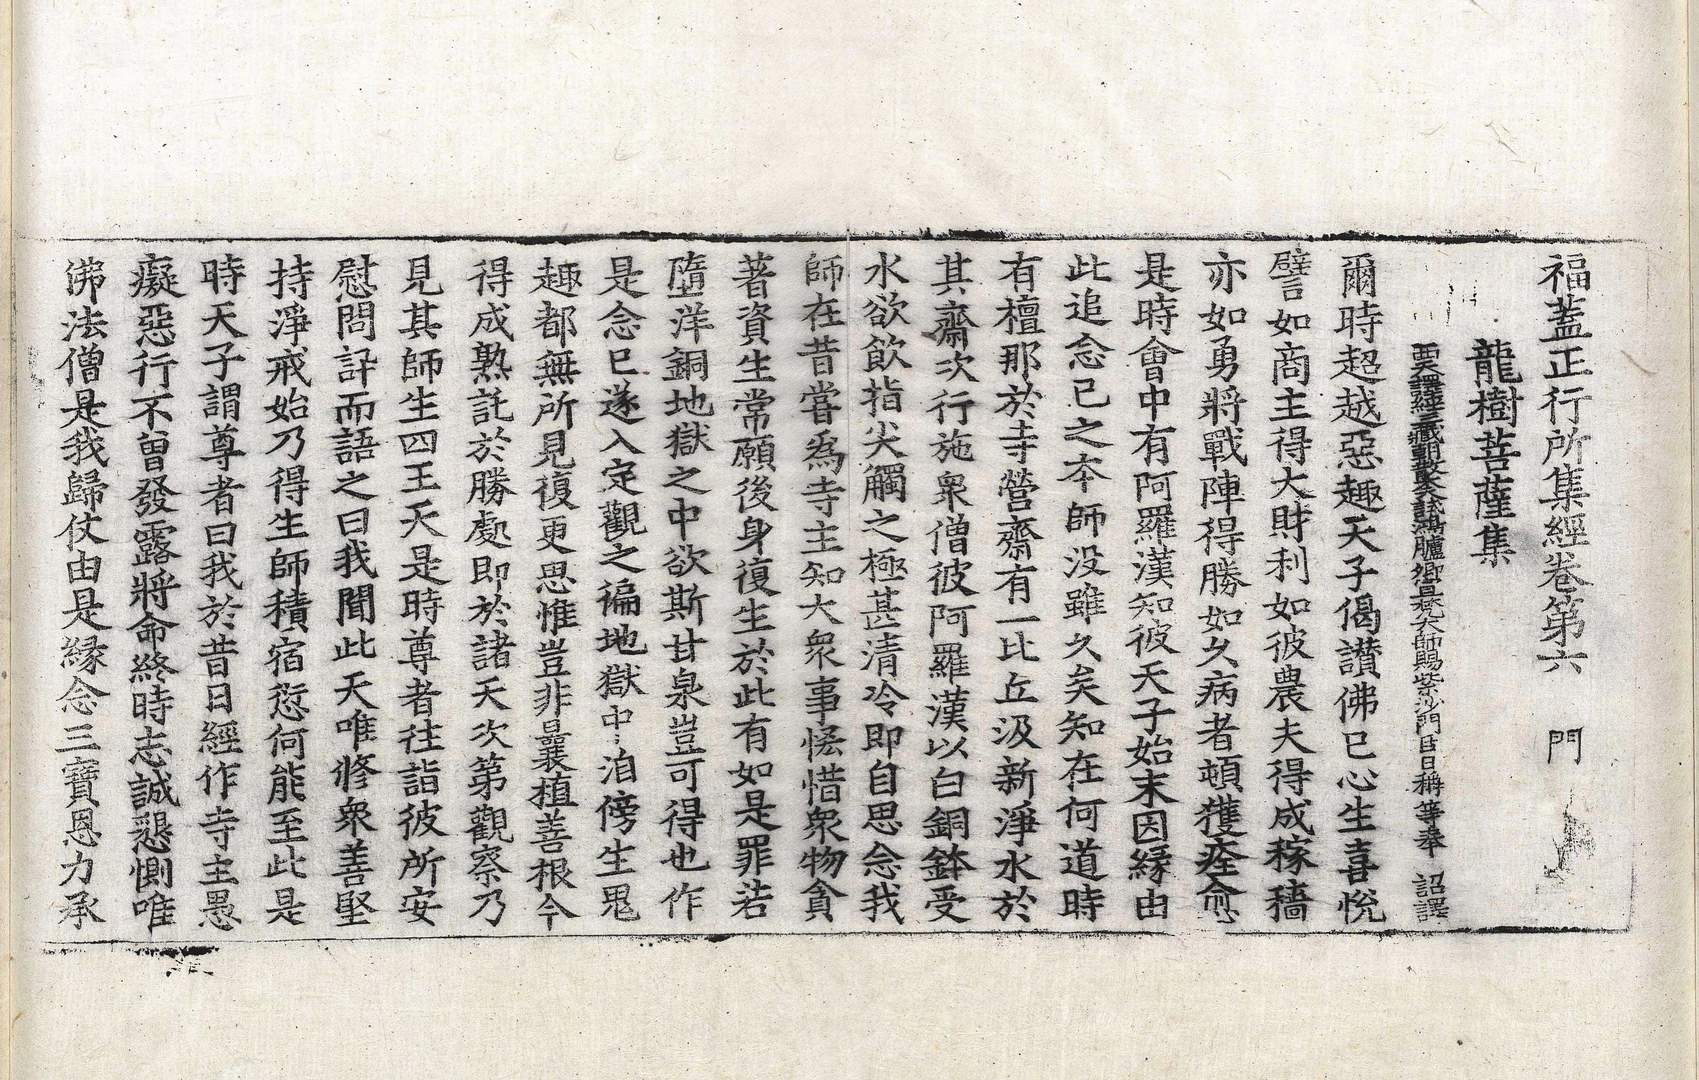 福蓋正行所集經卷第六　門
龍樹菩薩集
西天譯經三藏朝散大夫試鴻臚卿宣梵大師賜紫沙門臣日稱等奉　詔譯
爾時超越惡趣天子偈讃佛已心生喜悅
譬如商主得大財利如彼農夫得成稼穡
亦如勇將戰陣得勝如久病者頓獲痊愈
是時會中有阿羅漢知彼天子始末因緣由
此追念已之本師没雖久矣知在何道時
有檀那於寺營齋有一比丘汲新淨水於
其齋次行施衆僧彼阿羅漢以白銅鉢受
水欲飲指尖觸之極甚清冷即自思念我
師在昔嘗爲寺主知大衆事悋惜衆物貪
著資生常願後身復生於此有如是罪若
墮洋銅地獄之中欲斯甘泉豈可得也作
是念已遂入定觀之徧地獄中洎傍生鬼
趣都無所見復更思惟豈非曩植善根今
得成熟託於勝處即於諸天次第觀察乃
見其師生四王天是時尊者往詣彼所安
慰問訊而語之曰我聞此天唯修衆善堅
持淨戒始乃得生師積宿愆何能至此是
時天子謂尊者曰我於昔日經作寺主愚
癡惡行不曾發露將命終時志誠懇惻唯
佛法僧是我歸仗由是緣念三寶恩力承